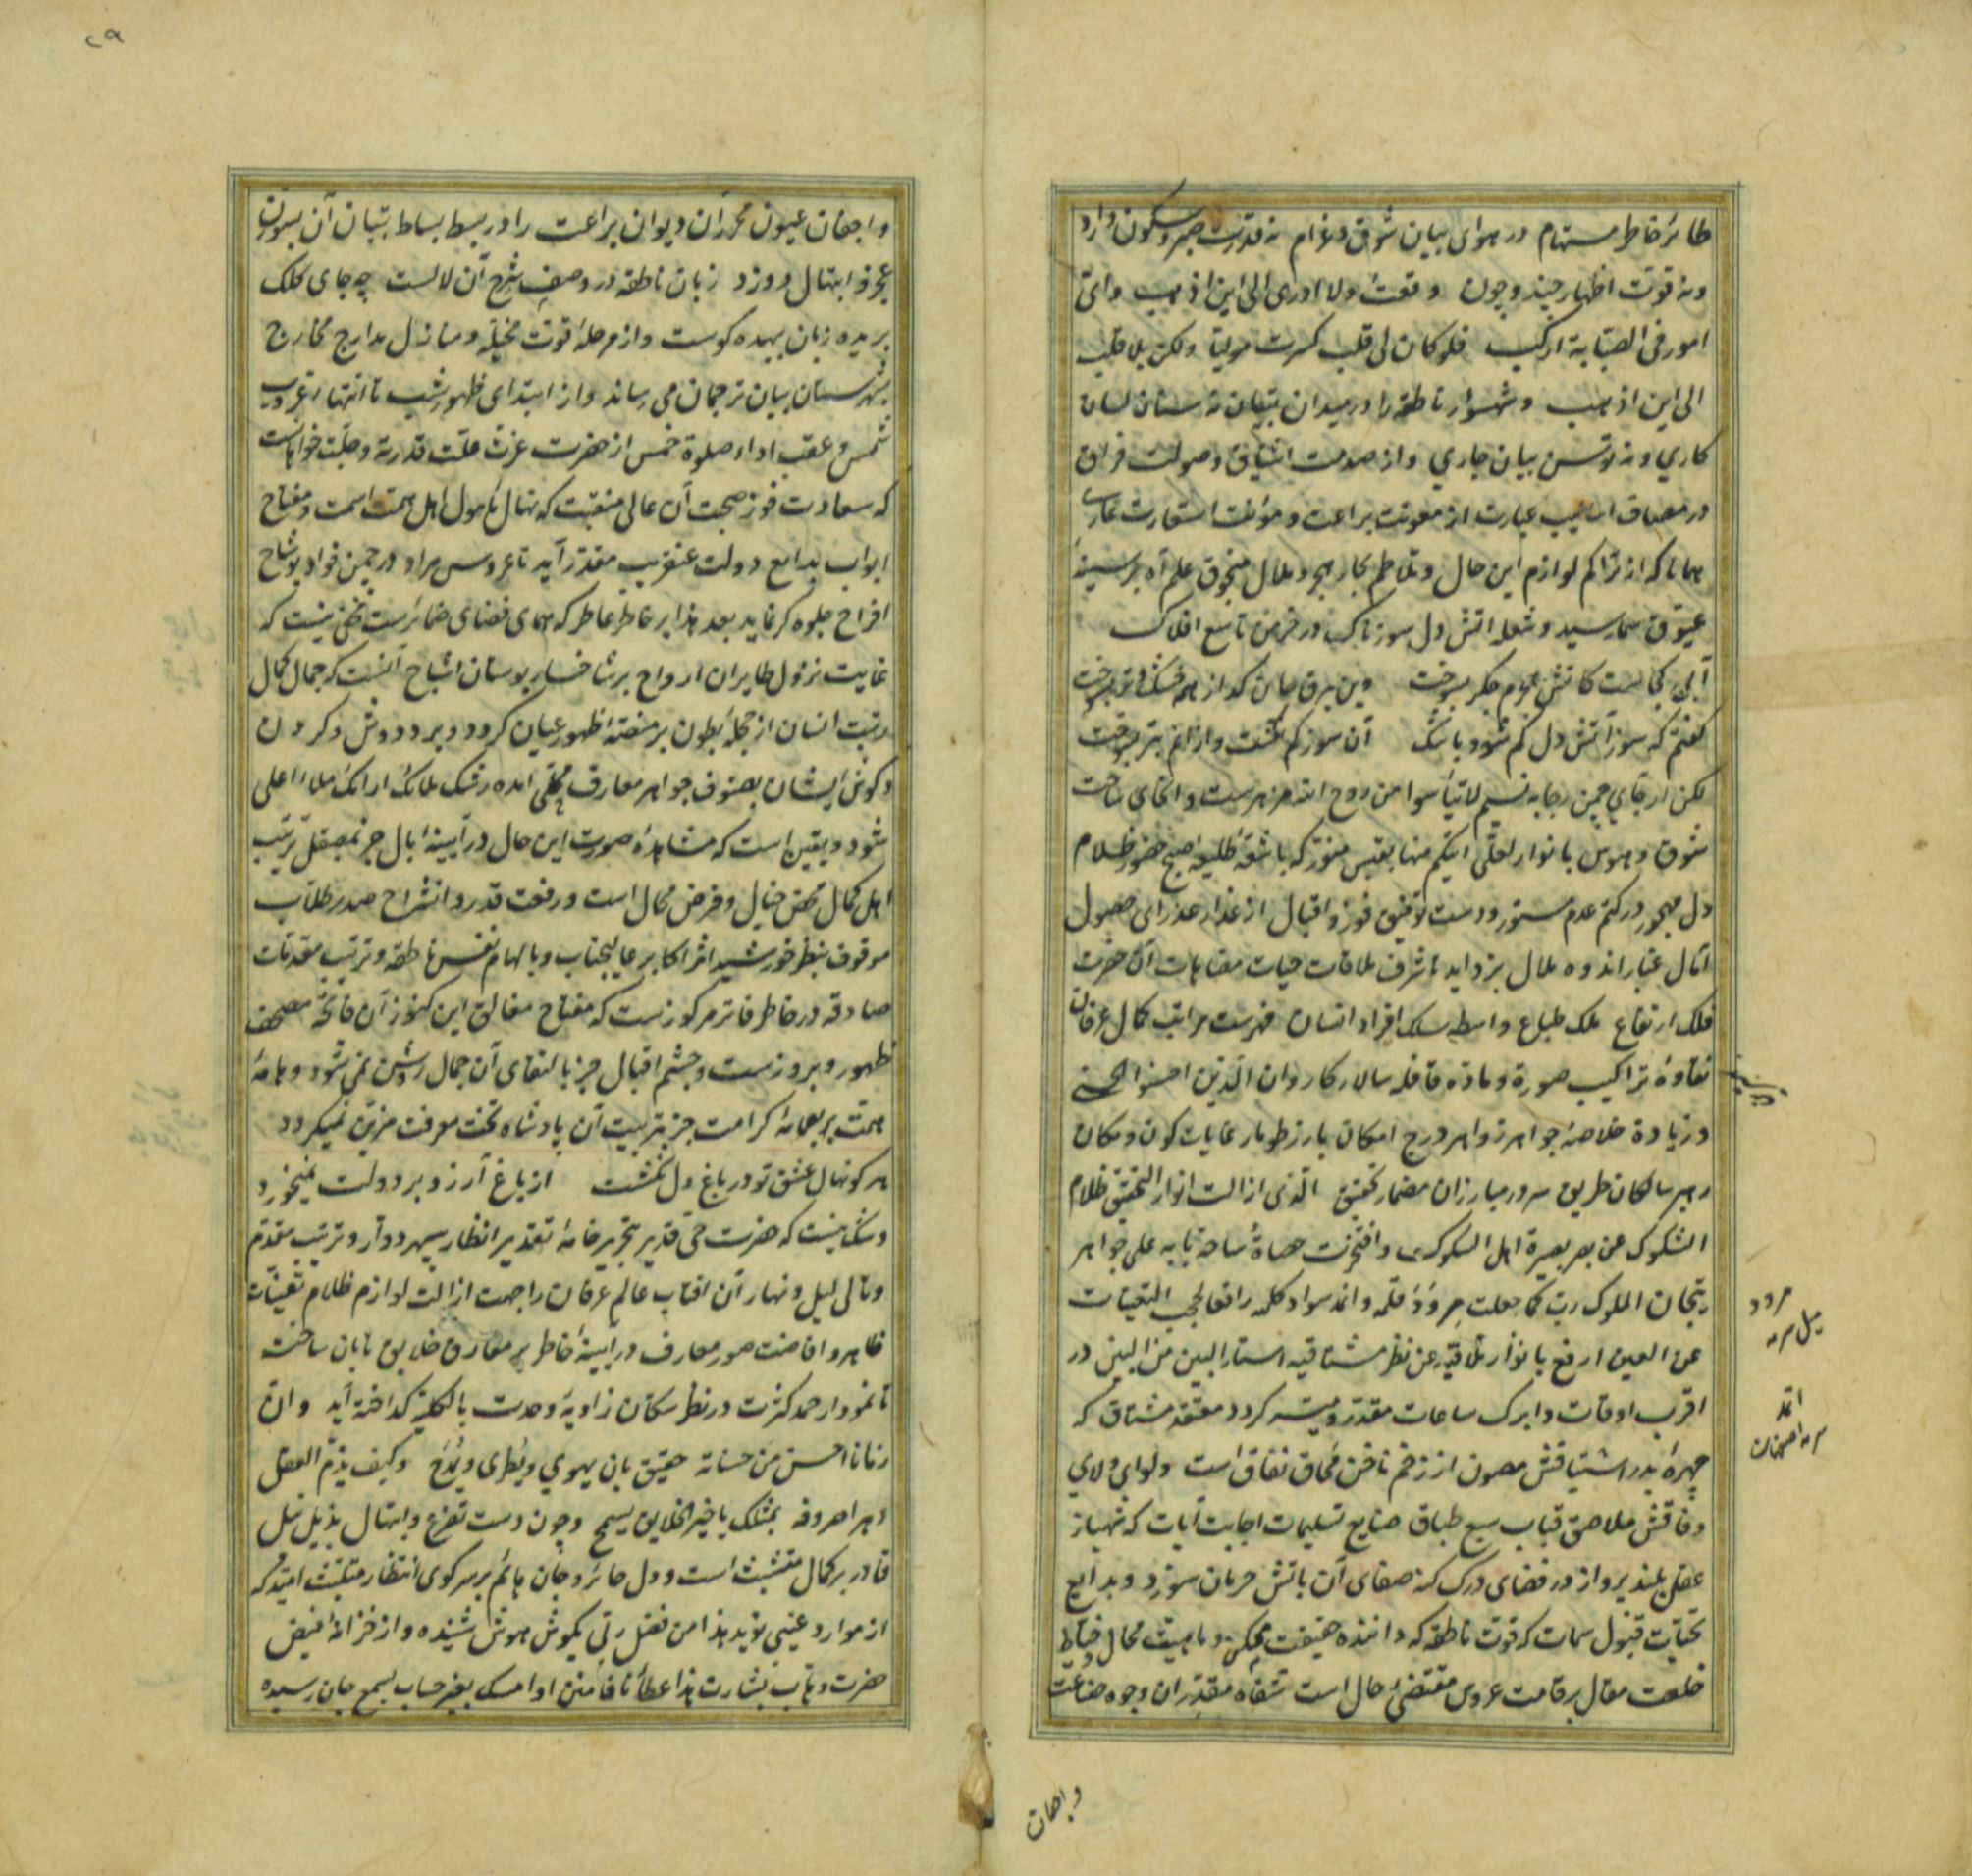 طائر خاطر مستهام در هوای بیان شوق و غرام نه قدرت صبر و سکون دارد
و نه قوت اظهار چند و چون وقعت ولا ادری الی این اذهب و ای
امور فی الصبابة ارکب فلو کان لی قلب کسرت مولیا ولکن بلا قلب
الی این اذهب و شهسوار ناطقه را در میدان تبیان نه سنان لسان
کاری و نه توسن بیان جاری و از صدمت اشتیاق و صولت فراق
در مصاف اسالیب عبارت از معونت براعت و مؤنت استعارت عاری
همانا که از تراکم لوازم این حال و تلاطم بحار هجر و ملال منجوق علم آه بر سینهٔ
عیوق سما رسید و شعلهٔ اتش دل سوزناک در خرمن تاسع افلاک
آبی کجاست کاتش جگر بسوخت وین برق جان که از همه خشک و تر بسوخت
گفتم که سوز آتش دل کم شود باشک آن سوز کم نگشت و از انم بتر بسوخت
لکن ارجای چمن رجا به نسیم لا تیأسوا من روح الله مزهرست و انحای ساحت
شوق و هوس بانوار لعلی اتیکم منها بقبس منور که باشعهٔ طلیعهٔ صبح حضور ظلام
دل مهجور در کتم عدم مستور و دست توفیق فوز و اقبال از عذار عذرای حصول
آمال غبار اندوه ملال بزداید تا شرف ملاقات حیات مضاهات آن حضرت
فلک ارتفاع ملک طباع واسطه سلک افراد انسان فهرست مراتب کمال عرفان
نقاوهٔ تراکیب صورة و ماده قافله سالار کاروان الذین احسنوا الحسنی
و زیادة خلاصهٔ جواهر زواهر درج امکان بارز طومار غایات کون و مکان
رهبر سالکان طریق سرور مبارزان مضمار تحقیق الذی ازالت انوار التحقیق ظلام
الشکوک عن بصر بصیرة اهل السلوک و افتخرت حصاة ساحة بابه علی جواهر
تیجان الملوک رب کما جعلت مرود قلمه و اثمد سواد کلمه رافعا لحجب التعینات
عن العین ارفع بانوار تلاقیه عن نظر مشتاقیه استار البین من البین در
اقرب اوقات و ابرک ساعات مقدر و میسر کردد معتقد مشتاق که
چهرهٔ بدر اشتیاقش مصون از زخم ناخن محاق نفاق است و لوای ولای
وفاقش ملاصق قباب سبع طباق صنایع تسلیمات اجابت آیات که شهباز
عقل بلند پرواز در فضای درک کنه صفای آن باتش حرمان سوزد و بدایع
تحیات قبول سمات که قوت ناطقه که داننده حقیقت ممکن و ماهیت محال و خیاط
خلعت مقال بر قامت عروس مقتضی حال است شفاه مقتدران وجوه صناعت
مرود
میل سرمه
اثمد
سرمه اصفهان
و اجفان
۲۹
و اجفان عیون محرران دیوان براعت را در بسط بساط تبیان آن بسوزن
عجز و ابتهال دوزد زبان ناطقه در وصف شرح آن لالست چه جای کلک
بریده زبان بیهده کوست و از مرحلهٔ قوت مخیله و منازل مدارج مخارج
بشهرستان بیان ترجمان می رساند و از ابتدای ظهور شیب تا انتهاء غروب
شمس و عقب اداء صلوة خمس از حضرت عزت علت قدرته و جلت خواهانست
که سعادت فوز صحبت آن عالی منقبت که نهال مامول اهل همت است و مفتاح
ابواب بدایع دولت عنقریب مقدر آید تا عروس مراد در چمن فواد بوشاح
افراح جلوه کر نماید بعد هذا بر خاطر عاطر که همای فضای ضمائرست مخفی نیست که
غایت نزول طایران ارواح بر شاخسار بوستان اشباح آنست که جمال کمال
رتبت انسان از حجلهٔ بطون بر منصهٔ ظهور عیان کردد و بر و دوش و کردن
و کوش ایشان بصنوف جواهر معارف محلی امده رشک ملائک ارائک ملاء اعلی
شود و یقین است که مشاهدهٔ صورت این حال در آیینهٔ بال جز بمصقل تربیت
اهل کمال محض خیال و فرض محال است و رفعت قدر و انشراح صدر طلاب
موقوف بنظر خورشید اثر اکابر عالیجناب و بالهام نفس ناطقه و ترتیب مقدمات
صادقه در خاطر فاتر مرکوزست که مفتاح مغالق این کنوز آن فاتحهٔ مصحف
ظهور و بروزست و چشم اقبال جز بالتقای آن جمال روشن نمی شود و هامهٔ
همت بر بعمامهٔ کرامت جز بتربیت آن پادشاه تخت معرفت مزین نمیکردد
هر کو نهال عشق تو در باغ دل نکشت از باغ آرزو بر دولت نمیخورد
و شک نیست که حضرت حی قدیر بتحریر خامهٔ تقدیر انظار سپهر دوار و ترتیب مقدم
و تالی لیل و نهار آن افتاب عالم عرفان را جهت ازالت لوازم ظلام تعینات
ظاهر و افاضت صور معارف در ایینهٔ خاطر بر مفارق خلایق تابان ساخت
تا نمودار حمد کثرت در نظر سکان زاویهٔ وحدت بالکلیه کداخته آید و ان
زمانا احسن من حسناته حقیق بان یهوی و یطری و یمدح وکیف یذم العقل
دهرا صروفه بمثلک یا خیر الخلایق یسمح و چون دست تضرع و ابتهال بذیل نیل
قادر بر کمال متشبث است و دل حائر و جان هائم بر سر کوی انتظار متلبث امید که
از موارد غیبی نوید هذا من فضل ربی بکوش هوش شنیده و از خزانهٔ فیض
حضرت وهاب بشارت هذا عطاؤنا فامنن او امسک بغیر حساب بسمع جان رسیده